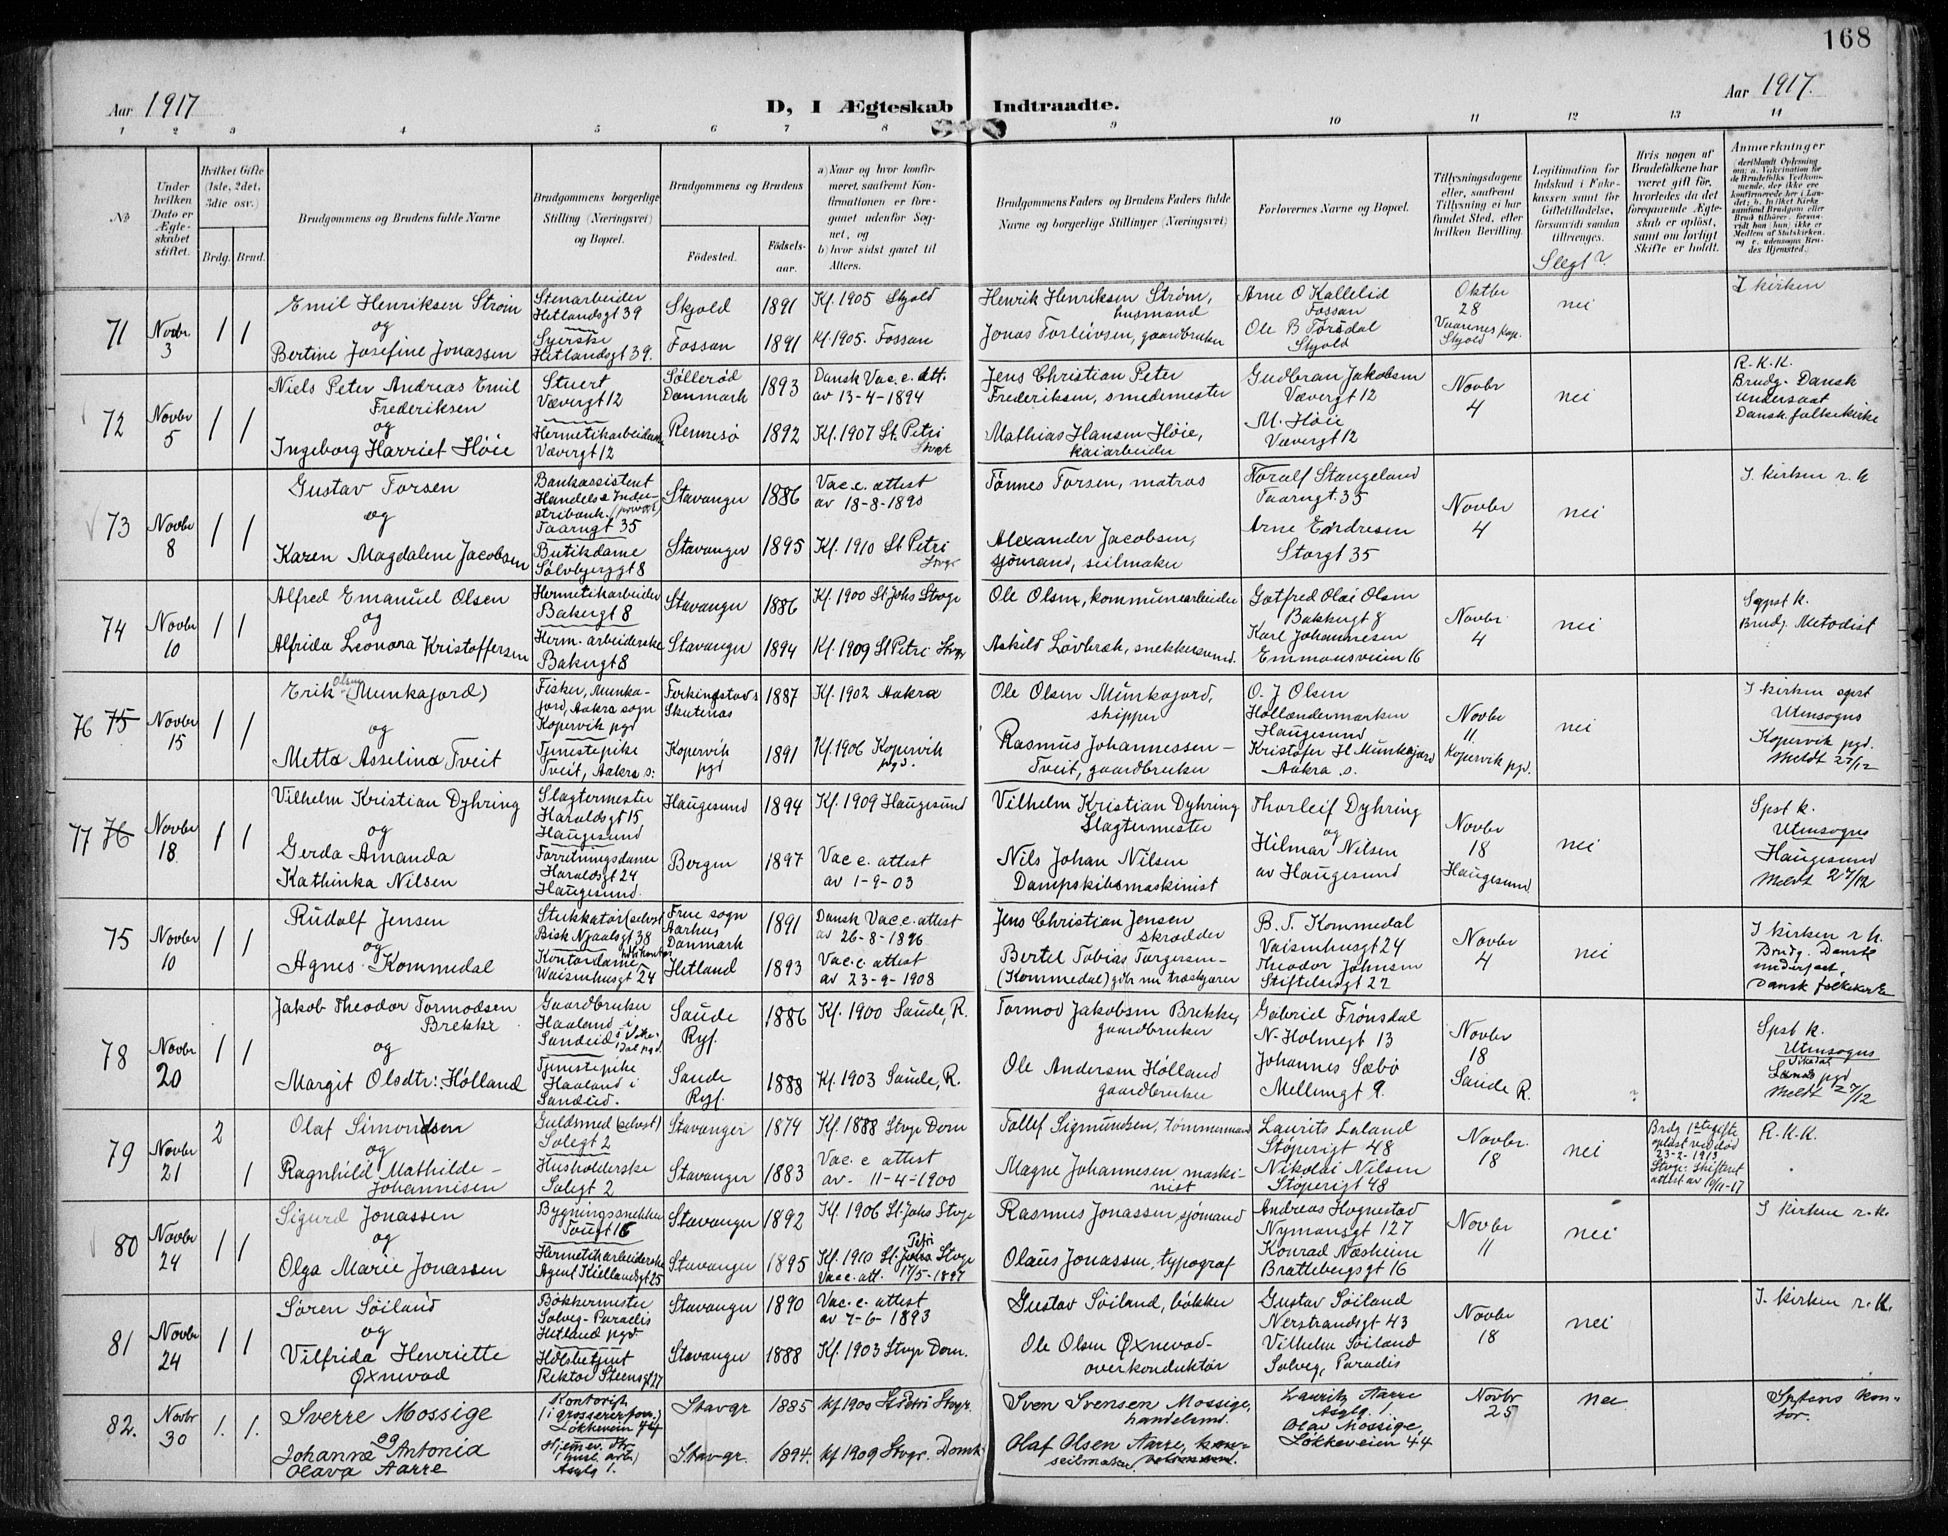 168
Aar 1917
D, I Ægteskab Indtraadte.
Aar 1917.
1 2 3 4 5 6 7 8 9 10 11 12 13 14
No
Under hvilken Dato er Ægteskabet stiftet.
Hvilket Gifte (1ste, 2det, 3die osv.)
Brdg. Brud.
Brudgommens og Brudens fulde Navne
Brudgommens borgerlige Stilling (Næringsvei) og Bopæl.
Brudgommens og Brudens
Födested.
Födselsaar.
a) Naar og hvor konfirmeret, saafremt Konfirmationen er foregaaet udenfor Sognet, og
b) hvor sidst gaaet til Alters.
Brudgommens Faders og Brudens Faders fulde Navne og borgerlige Stillinger (Næringsvei)
Forlovernes Navne og Bopæl.
Tillysningsdagene eller, saafremt Tillysning ei har fundet Sted, efter hvilken Bevilling.
Legitimation for Indskud i Enkekassen samt for Giftetilladelse, forsaavidt saadan tiltrænges.
Slegt?
Hvis nogen af Brudefolkene har været gift för, hvorledes da det foregaaende Ægteskab er oplöst, samt om lovligt Skifte er holdt.
Anmærkninger
71
Novbr 3
1 1
Emil Henriksen Strøm
og
Bertine Josefine Jonassen
Stenarbeider
Hetlandsgt 39
Syerske
Hetlandsgt 39.
Skjold 1891 Kf. 1905 Skjold
Fossan 1891 Kf. 1905. Fossan
Henrik Henriksen Strøm,
husmand
Jonas Torleivsen, gaardbruker
Arne O Kallelid
Fossan
Ole B Torsdal
Skjold
Oktbr
28
Skjold
nei
I kirken
72
Novbr 5
1 1
Niels Peter Andreas Emil
Frederiksen
og
Ingeborg Harriet Høie
Stuert
Vævergt 12
Hermetikarbeiderske
Vævergt 12
Søllerød
Danmark 1893
Rennesø 1892
Dansk Vac. c. att.
av 13-4-1894
Kf. 1907 St. Petri
Stvgr
Jens Christian Peter
Frederiksen, smedmester
Mathias Hansen Høie,
kaiarbeider
Gudbran Jakobsen
Vævergt 12
M. Høie
Vævergt 12
Novbr
4
nei
R.K.K.
Brudg. Dansk
undersaat
Dansk folkekirke
73
Novbr 8
1 1
Gustav Torsen
og
Karen Magdalene Jacobsen
Bankassistent
Handels & Industribank. (privat)
Taarngt 35
Butikdame
Sølvbergsgt 8
Stavanger 1886
Stavanger 1895
Vac. c. attest
av 18-8-1890
Kf. 1910 St Petri
Stvgr
Tønnes Torsen, matros
Alexander Jacobsen,
sjømand, seilmaker
Noralf Stangeland
Taarngt. 35
Arne Endresen
Storgt 35
Novbr
4
nei
I. kirken r. k
74
Novbr 10
1 1
Alfred Emanuel Olsen
og
Alfrida Leonora Kristoffersen
Hermetikarbeider
Bakergt 8
Herm. arbeiderske
Bakergt 8
Stavanger 1886
Stavanger 1894
Kf. 1900 St Johs Stvgr
Kf. 1909 St Petri Stvgr
Ole Olsen, kommunearbeider
Askild Løvbræk, snekkersvend.
Gotfred Olai Olsen
Bakkergt 8
Karl Johannesen
Emmausveien 16
Novbr
4
nei
Spst k.
Brudg. Metodist
76 75
Novbr 15
1 1
Erik Olsen (Munkajord)
og
Metta Asselina Tveit
Fisker, Munkajord, Aakra sogn
Kopervik pgd
Tjenestepike
Tveit, Aakra s:
Ferkingstad s
Skutenæs 1887
Kopervik
pgd 1891
Kf. 1902 Aakra
Kf. 1906 Kopervik
pgd.
Ole Olsen Munkajord,
skipper
Rasmus Johannessen-
Tveit, gaardbruker
O. J Olsen
Hollændermarken
Haugesund
Kristofer H Munkajord
Aakra s.
Novbr
11
Kopervik pgd.
nei
I kirken spst
Utensogns
Kopervik pgd.
Meldt 27/12
77 76
Novbr 18
1 1
Vilhelm Kristian Dyhring
og
Gerda Amanda
Kathinka Nilsen
Slagtermester
Haraldsgt 15
Haugesund
Forretningsdame
Haraldsgt 24
Haugesund.
Haugesund 1894
Bergen 1897
Kf. 1909 Haugesund
Vac c. attest
av 1-9-03
Vilhelm Kristian Dyhring
Slagtermester
Nils Johan Nilsen
Dampskibsmaskinist
Thorleif Dyhring
og
Hilmar Nilsen
av Haugesund
Novbr
18
Haugesund
nei
Spst k.
Utensogns
Haugesund
Meldt 27/12
75
Novbr 10
1 1
Rudolf Jensen
og
Agnes Kommedal
Stukkatør (selvst
Bisk Njaalsgt 38
Kontordame
Waisenhusgt 24
Frue sogn
Aarhus
Danmark 1891
Hetland 1893
Dansk Vac. c. attest
av 26-8-1896
Vac. c. attest
av 23-9-1908
Jens Christian Jensen
skrædder
Bertel Tobias Torgersen-
(Kommedal)
B. T. Kommedal
Vaisenhusgt 24
Theodor Johnsen
Stiftelsesgt 22
Novbr
4
nei
I kirken r. k.
Brudg. Dansk
undersaat,
Dansk folkekirke
78
Novbr 20
1 1
Jakob Theodor Tormodsen
Brekke
og
Margit Olsdtr: Hølland
Gaardbruker
Haaland i
Sandeid i Vikedal pgd.
Tjenestepike
Haaland i
Sandeid.
Saude
Ryf. 1886
Saude
Ryf. 1888
Kf. 1900 Saude, R.
Kf. 1903 Saude, R.
Tormod Jakobsen Brekke,
gaardbruker
Ole Andersen Hølland
gaardbruker
Gabriel Frønsdal
N. Holmegt 13
Johannes Sæbø
Mellemgt 9.
Novbr
18
Saude R.
?
Spst k.
Utensogns
Vikedal
pgd
Meldt 27/12
79
Novbr 21
2 1
Olaf Simonsen
og
Ragnhild Mathilde-
Johannisen
Guldsmed (selvst)
Solegt 2
Husholderske
Solegt 2
Stavanger 1874
Stavanger 1883
Kf. 1888 Stvgr Dom
Vac. c attest
av. 11-4-1900
Tollef Sigmundsen, tømmermand
Magne Johannesen maskinist
Laurits Laland
Støperigt 48
Nikolai Nilsen
Støperigt 48
Novbr.
18
nei
Brdg 1ste gifte
opløst ved død
23-2-1913
Stvgr. skifteret
attest av 19/11-17
R.K.K.
80
Novbr 24
1 1
Sigurd Jonassen
og
Olga Marie Jonassen
Bygningssnekker
Tougt 16
Hermetikarbeiderske
Agent Kiellandsgt 25
Stavanger 1892
Stavanger 1895
Kf. 1906 St Johs Stvgr
Kf. 1910 St. Petri Stvgr
Vac c. att. 17/5-1897
Rasmus Jonassen sjømand
Olaus Jonassen, typograf
Andreas Hognestad
Nymansgt 127
Konrad Næsheim
Brattebergsgt 16
Novbr
11
nei
I kirken r.k.
81
Novbr 24
1 1
Søren Søiland
og
Vilfrida Henriette
Øxnevad
Bøkkermester
Solveg-Paradis
Hetland pgd
Husbetjent
Rektor Steensgt 27
Stavanger 1890
Stavanger 1888
Vac. c. attest
av 7-6-1893
Kf. 1903 Stvgr Dom.
Gustav Søiland, bøkker
Ole Olsen Øxnevad-
overkonduktør
Gustav Søiland
Nerstrandsgt 43
Vilhelm Søiland
Solveg, Paradis
Novbr
18
nei
I. kirken r.k.
82.
Novbr 30
1. 1.
Sverre Mossige
og
Johanna Antonia
Olava Aarre
Kontorist
(i grossererforr.)
Løkkevein 44
Hjemmev.
Asylg 1.
Stavgr 1885
Stavgr. 1894.
kf 1900 St Petri Stvgr.
kf 1909 Stvgr. Domk
Sven Svensen Mossige,
handelsmd.
Olaf Olsen Aarre,
seilmaker
Lauritz Aarre
Asylg. 1
Olav Mossige,
Løkkeveien 44
Novbr
25
nei
Sptens kontor.